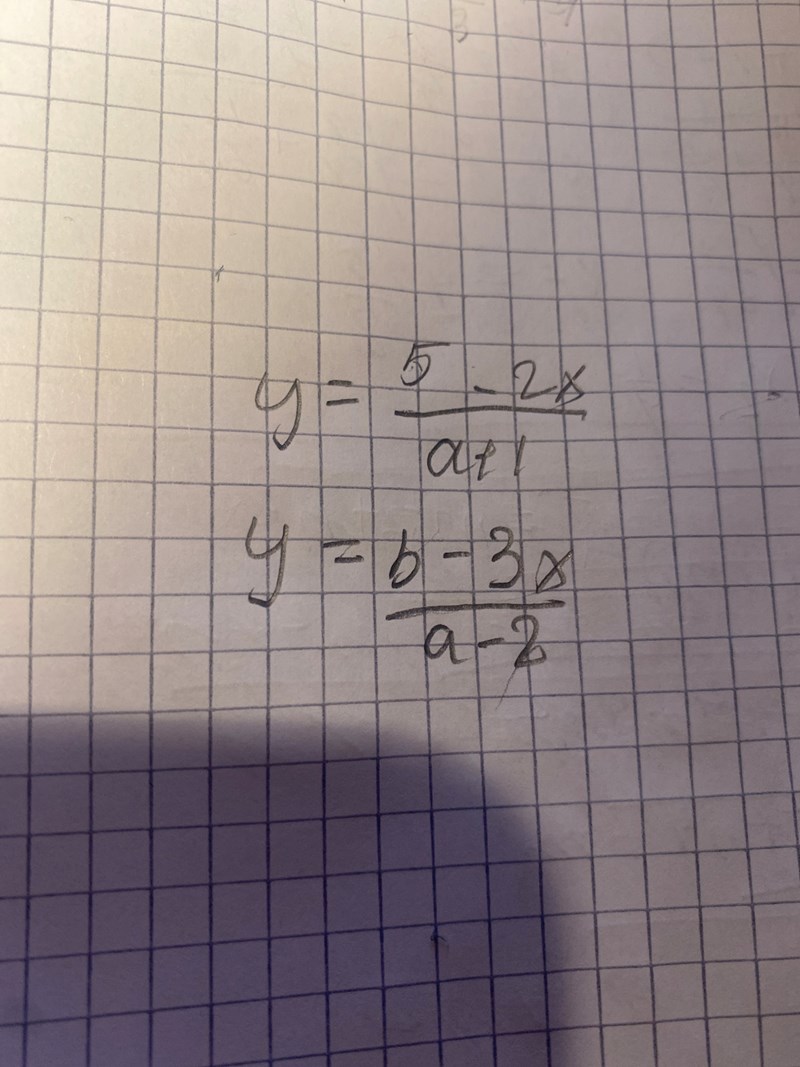 y = (5 - 2x)/(a+1)
y = (b - 3x)/(a-2)